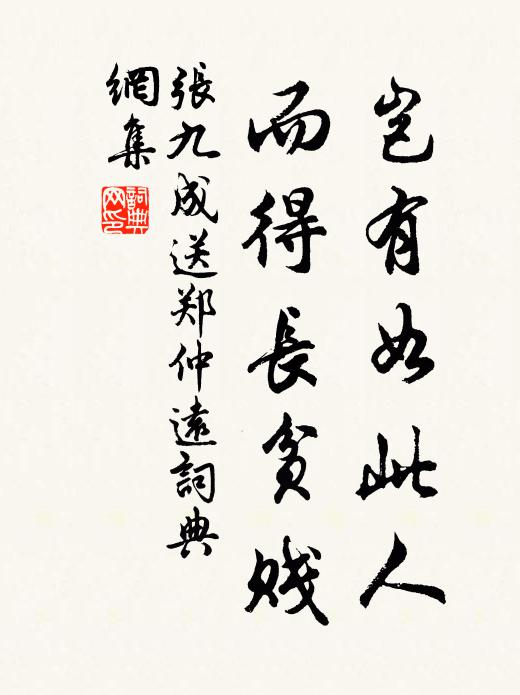 豈有如此人
而得長貧賤
張九成送郑仲遠詞典
網集
詞典
网印